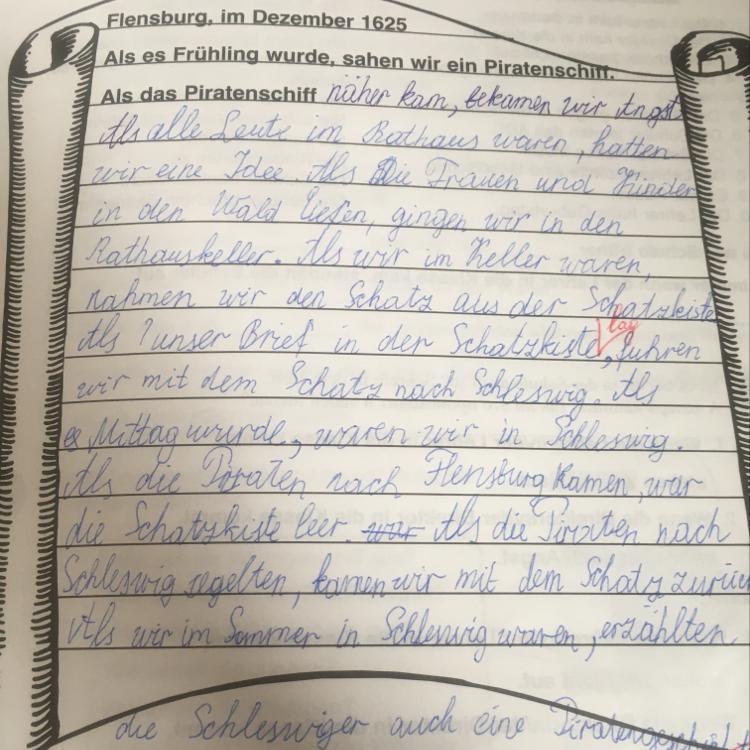 Flensburg, im Dezember 1625
Als es Frühling wurde, sahen wir ein Piratenschiff.
Als das Piratenschiff näher kam, bekamen wir Angst
Als alle Leute im Rathaus waren, hatten
wir eine Idee. Als Die Frauen und Kinder
in den Wald liefen, gingen wir in den
Rathauskeller. Als wir im Keller waren,
nahmen wir den Schatz aus der Schatzkiste
lag
Als ? unser Brief in der Schatzkiste, fuhren
wir mit dem Schatz nach Schleswig. Als
es Mittag wurde, waren wir in Schleswig.
Als die Piraten nach Flensburg kamen, war
die Schatzkiste leer. war Als die Piraten nach
Schleswig segelten, kamen wir mit dem Schatz zurück
Als wir im Sommer in Schleswig waren, erzählten
die Schleswiger auch eine